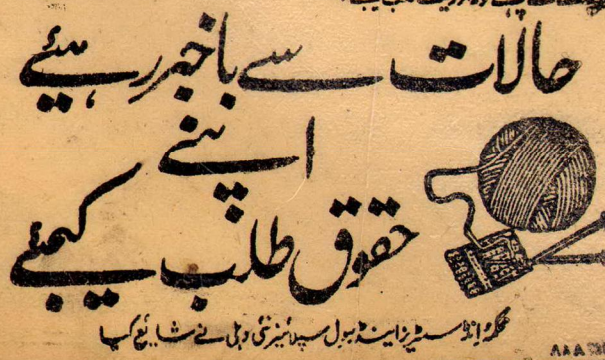 حالات سے باخبر رہئیے
اپنے
حقوق طلب کیجئے
محکمہ انڈسٹریز اینڈ سول سپلائیز نئی دہلی نے شایع کیا
AAA